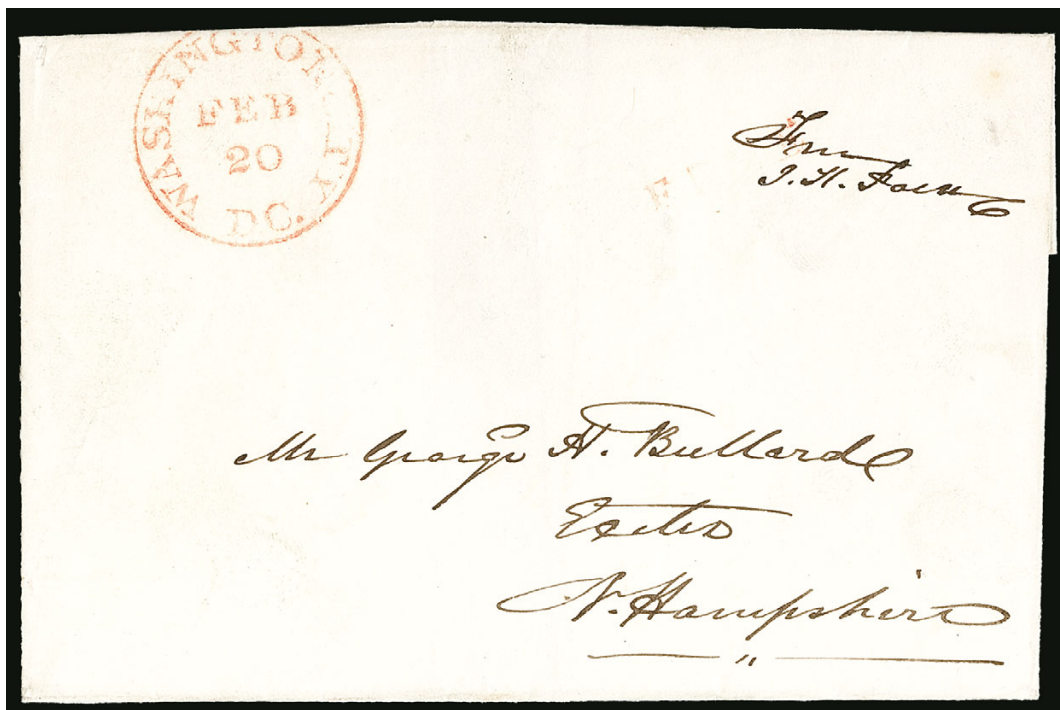 WASHINGTON CITY
FEB
20
D.C.
Free
Mr George Bullard
Exeter
N. Hampshire